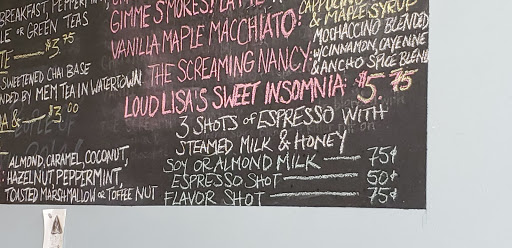 BREAKFAST, PEPPERMINT,
LE OR GREEN TEAS
TE $3.75
SWEETENED CHAI BASE
NDED BY MEM TEA IN WATERTOWN
A & $3.00
ALMOND, CARAMEL, COCONUT,
: HAZELNUT, PEPPERMINT,
TOASTED MARSHMALLOW OR TOFFEE NUT
GIMME S'MORES!
& MAPLE SYRUP
VANILLA MAPLE MACCHIATO:
MOCHACCINO BLENDED
W/CINNAMON, CAYENNE
THE SCREAMING NANCY: & ANCHO SPICE BLEND
LOUD LISA'S SWEET INSOMNIA: $5.75
3 SHOTS OF ESPRESSO WITH
STEAMED MILK & HONEY
SOY OR ALMOND MILK — 75¢
ESPRESSO SHOT — 50¢
FLAVOR SHOT — 75¢